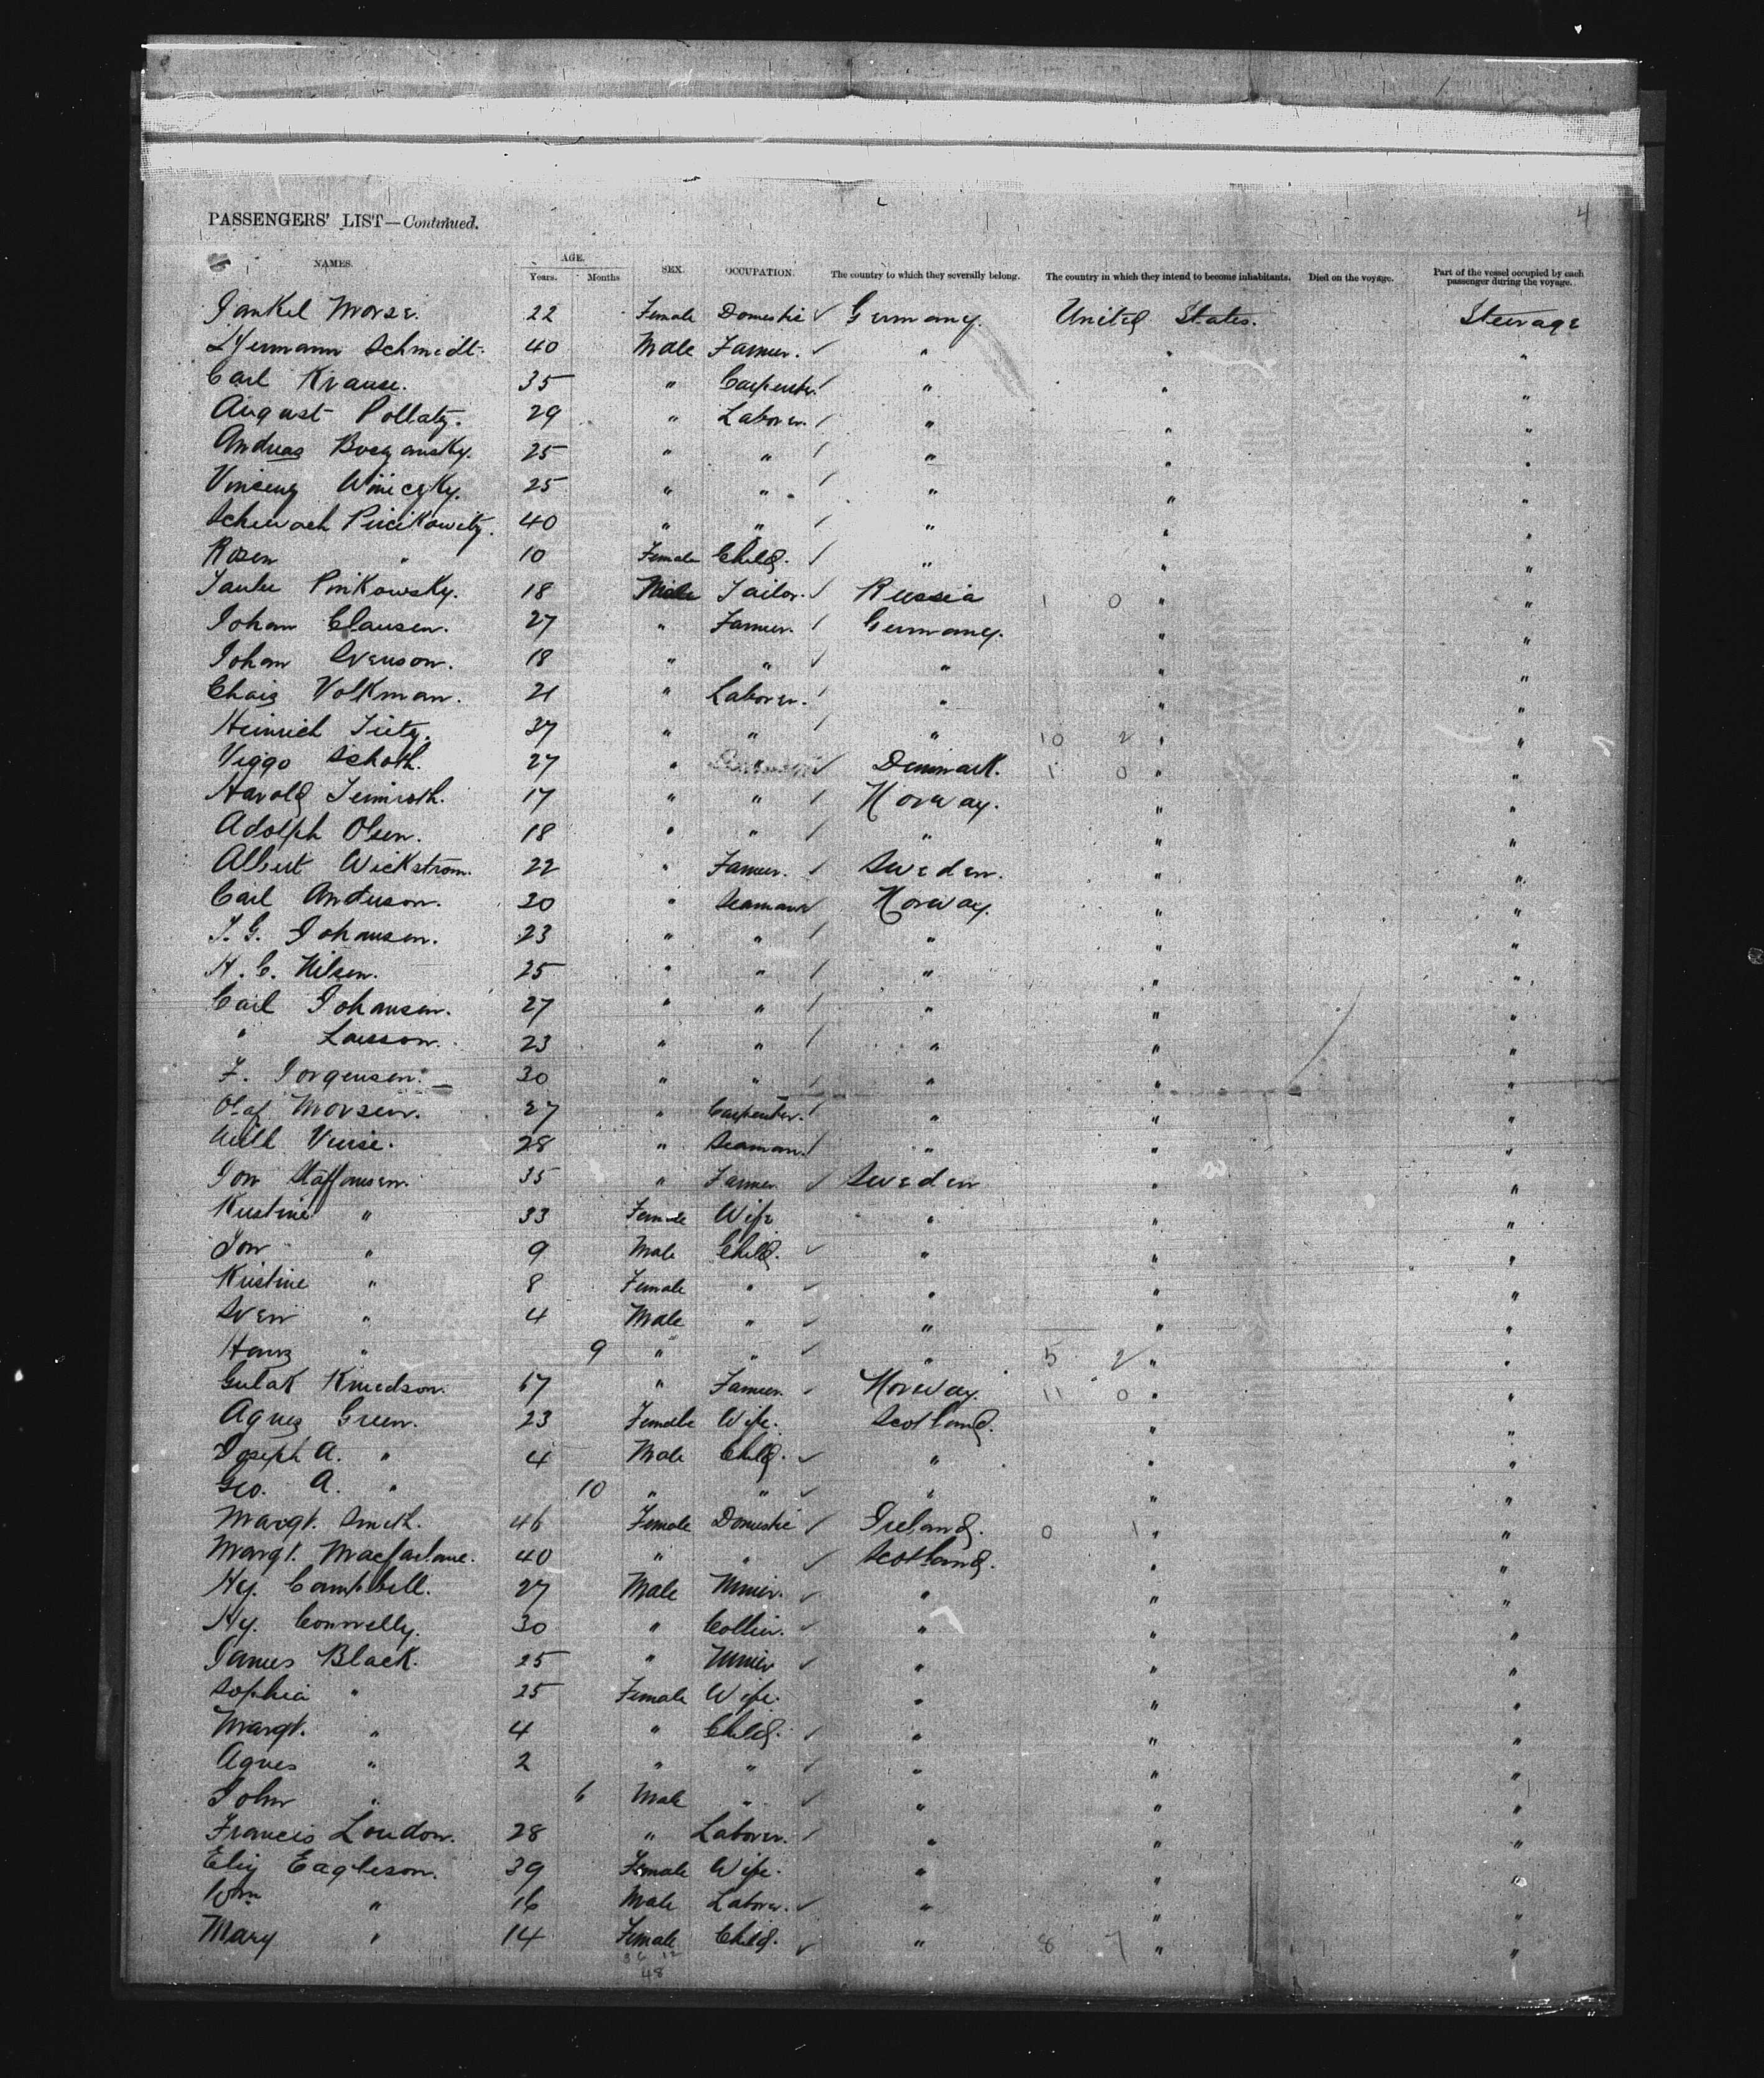 4
PASSENGERS' LIST—Continued.
NAMES. AGE. Years. Months SEX. OCCUPATION. The country to which they severally belong. The country in which they intend to become inhabitants. Died on the voyage. Part of the vessel occupied by each passenger during the voyage.
Jankel Morse. 22 Female Domestic Germany. United States. Steerage
Hermann Schmidt. 40 Male Farmer. " " "
Carl Krause. 35 " Carpenter " " "
August Pollatz. 29 " Laborer. " " "
Andreas 25 " " " " "
25 " " " " "
40 " " " " "
Rosen " 10 Female Child. " " "
Pinkowsky. 18 Male Tailor. Russia 1 0 " "
Johan Clausen. 27 " Farmer. Germany. " "
Johan Svenson. 18 " " " " "
Volkman. 21 " Laborer. " " "
Heinrich Tietz. 37 " " " 10 2 " "
Viggo Schoth. 27 " " Denmark. 1 0 " "
Harold 17 " " Norway. " "
Adolph Olsen. 18 " " " " "
Albert Wickstrom. 22 " Farmer. Sweden. " "
Carl Anderson. 20 " Seaman Norway. " "
J. G. Johansen. 23 " " " " "
H. C. Nilsen. 25 " " " " "
Carl Johansen. 27 " " " " "
" Larsson. 23 " " " " "
F. Jorgensen. 30 " " " " "
Olaf Morsen. 27 " Carpenter. " " "
28 " Seaman. " " "
Jon Staffansen. 35 " Farmer Sweden " "
Kristine " 33 Female Wife " " "
Jon " 9 Male Child. " " "
Kristine " 8 Female " " " "
Sven " 4 Male " " " "
Hans " 9 " " " 5 2 " "
Gulak Knudson. 17 " Farmer. Norway. 11 0 " "
Agnes Green. 23 Female Wife. Scotland. " "
Joseph A. " 4 Male Child. " " "
Geo. A. " 10 " " " " "
Margt. Smith. 46 Female Domestic Ireland. 0 1 " "
Margt. Macfarlane. 40 " " Scotland. " "
Hy. Campbell. 27 Male Miner. " " "
Hy. Connelly. 30 " Collier. " " "
James Black. 25 " Miner " " "
Sophia " 25 Female Wife. " " "
Margt. " 4 " Child. " " "
Agnes " 2 " " " " "
John " 6 Male " " " "
Francis Loudon. 28 " Laborer. " " "
Eliz Eagleson. 39 Female Wife. " " "
Wm " 16 Male Laborer. " " "
Mary " 14 Female Child. " 8 7 " "
36 12
48